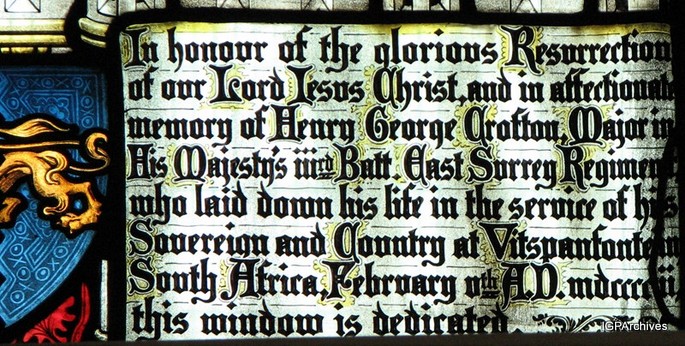 In honour of the glorious Resurrection
of our Lord Jesus Christ, and in affectionate
memory of Henry George Crofton, Major in
His Majesty's iiird Batt. East Surrey Regiment
who laid down his life in the service of his
Sovereign and Country at Vitspanfontein
South Africa February vth A.D. mdccccii
this window is dedicated.
IGPArchives